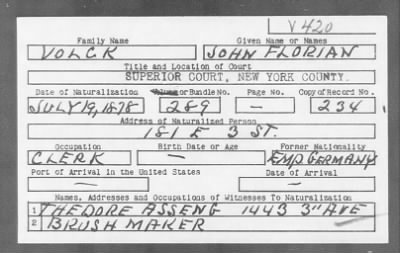 V 420
Family Name Given Name or Names
VOLCK JOHN FLORIAN
Title and Location of Court
SUPERIOR COURT, NEW YORK COUNTY.
Date of Naturalization Volume or Bundle No. Page No. Copy of Record No.
JULY 19, 1878 289 — 234
Address of Naturalized Person
181 E 3 ST.
Occupation Birth Date or Age Former Nationality
CLERK — EMP. GERMANY
Port of Arrival in the United States Date of Arrival
— —
Names, Addresses and Occupations of Witnesses To Naturalization
1 THEDORE ASSENG 1443 3" AVE
2 BRUSH MAKER